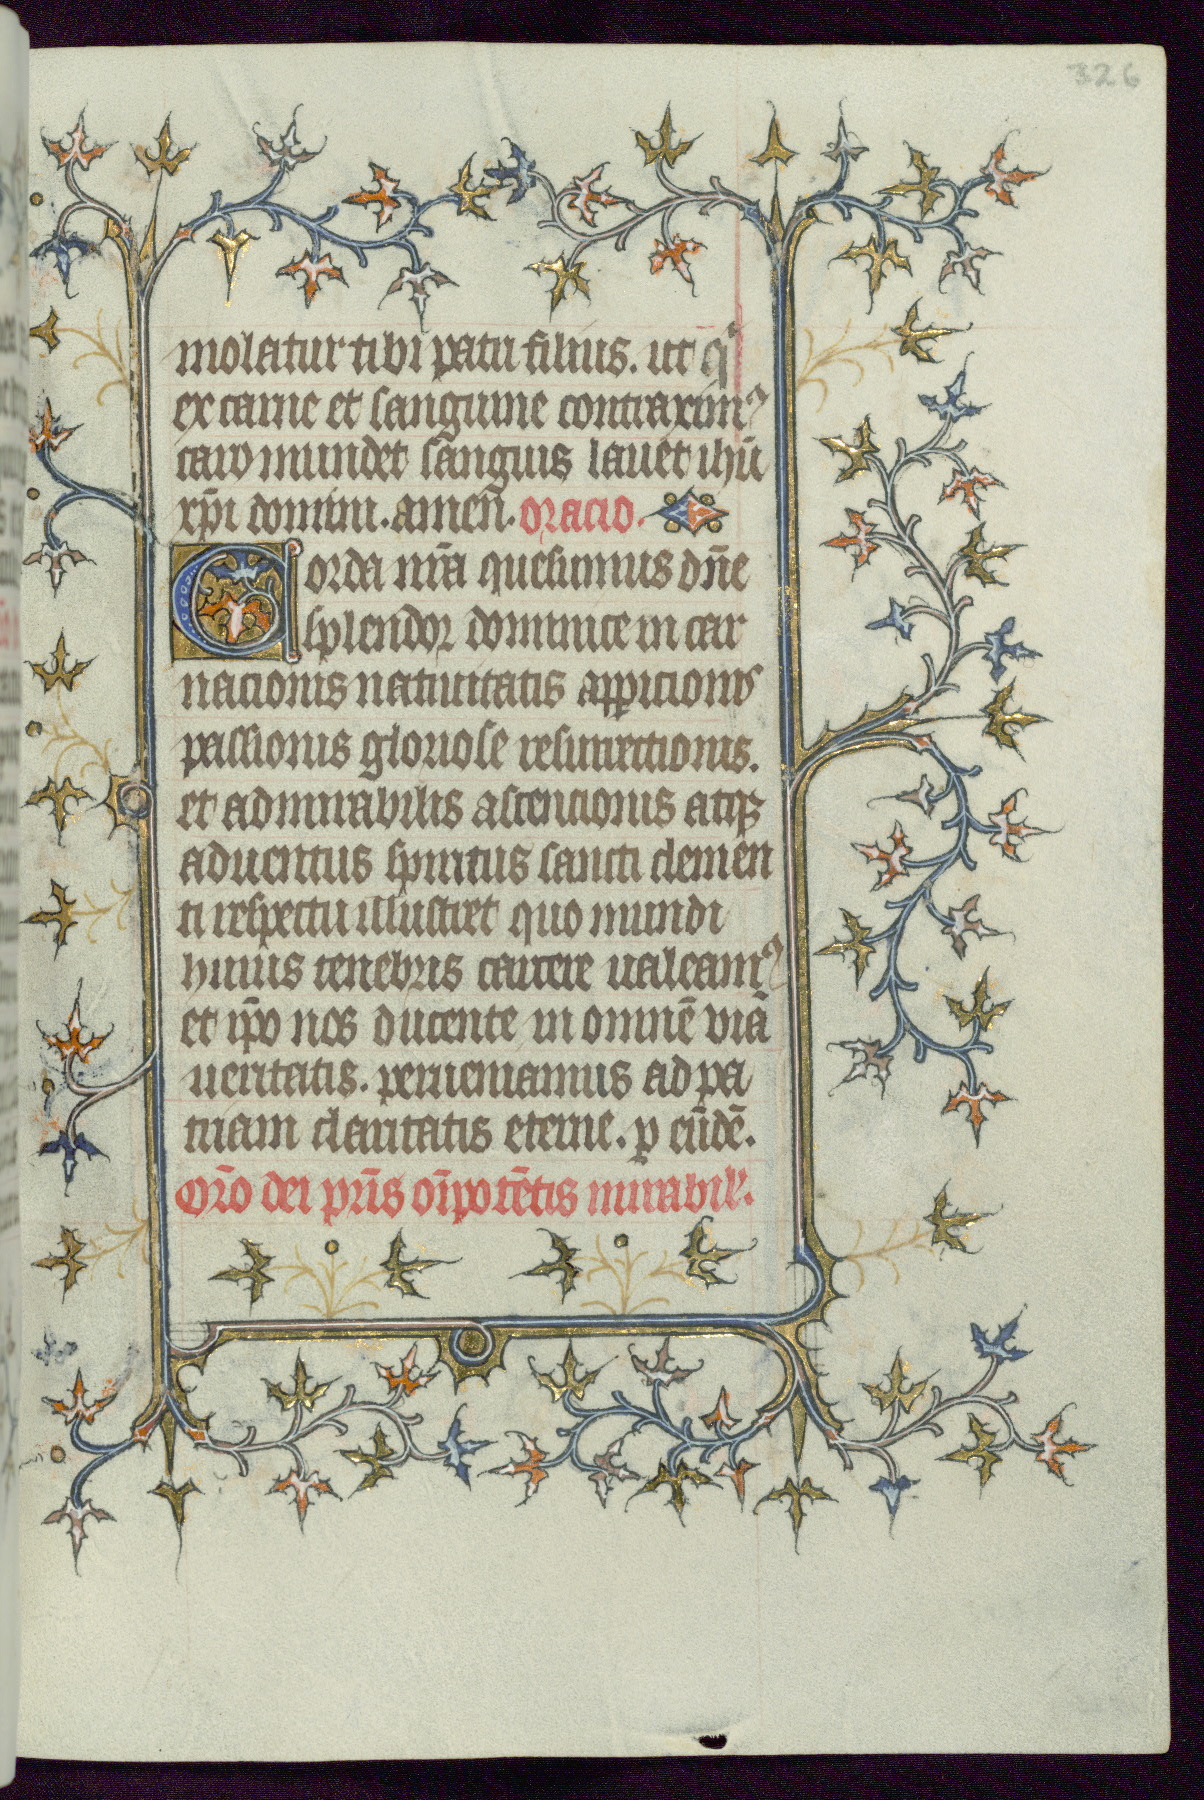 326
molatur tibi patri filius. ut qͥ
ex carne et sanguine contraximꝰ
caro mundet sanguis lauet ihū
xp̄i domini. amen̄. oracio.
Corda nr̄a quesumus dn̄e
splendor dominice in car
nacionis natiuitatis appicionis
passionis gloriose resurrectionis.
et admirabilis ascencionis atqꝫ
aduentus spiritus sancti clemen
ti respectu illustret quo mundi
huius tenebris carcere ualeamꝰ
et ip̄o nos ducente in omnē uiā
ueritatis. perueniamus ad pa
triam claritatis eterne. p eūdē.
Or̄o dei pr̄is oīpotētis mirabil'.